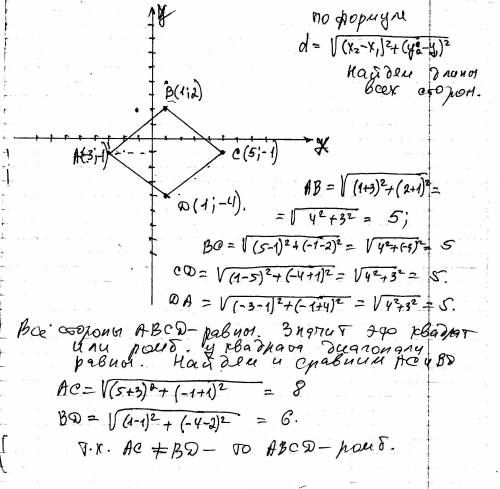 y
по формуле
d = √((x₂-x₁)²+(y₂-y₁)²)
Найдем длины
всех сторон.
B(1;2)
A(-3;-1)
C(5;-1)
x
D(1;-4).
AB = √((1+3)²+(2+1)²) =
= √(4²+3²) = 5;
BC = √((5-1)²+(-1-2)²) = √(4²+(-3)²) = 5
CD = √((1-5)²+(-4+1)²) = √(4²+3²) = 5.
DA = √((-3-1)²+(-1+4)²) = √(4²+3²) = 5.
Все стороны ABCD-равны. Значит это квадрат
или ромб. У квадрата диагонали
равны. Найдем и сравним AC и BD
AC = √((5+3)²+(-1+1)²) = 8
BD = √((1-1)²+(-4-2)²) = 6.
т.к. AC ≠ BD - то ABCD - ромб.